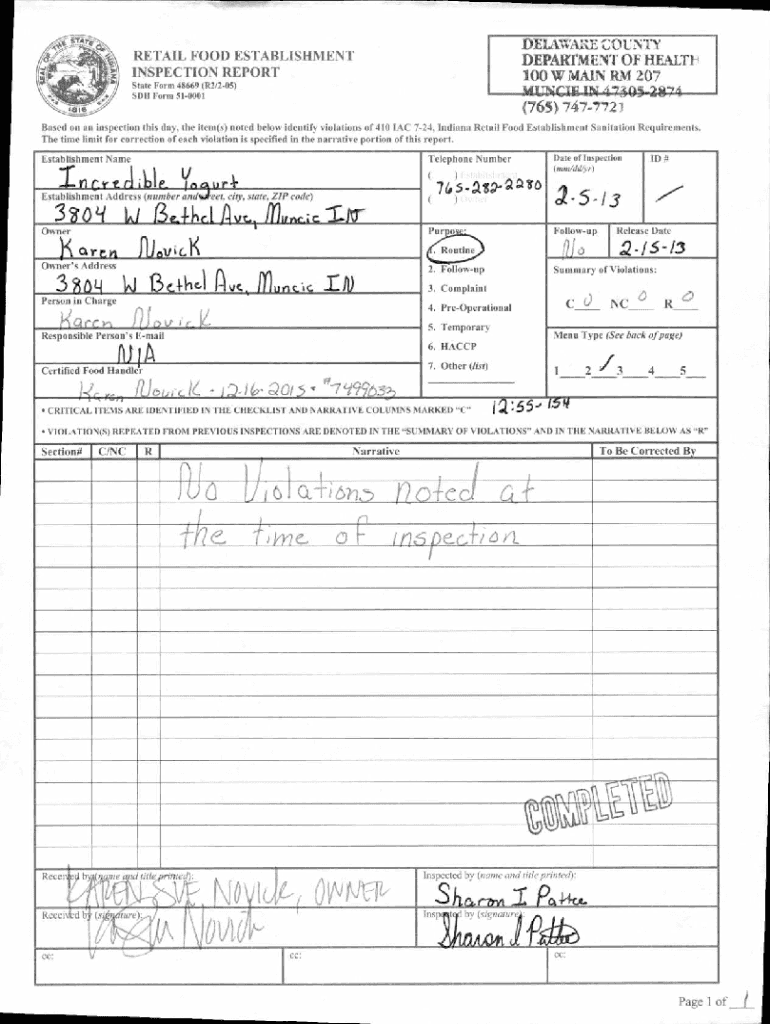 RETAIL FOOD ESTABLISHMENT
INSPECTION REPORT
State Form 48669 (R2/2-05)
SDH Form 51-0001
DELAWARE COUNTY
DEPARTMENT OF HEALTH
100 W MAIN RM 207
MUNCIE IN 47305-2874
(765) 747-7721
Based on an inspection this day, the item(s) noted below identify violations of 410 IAC 7-24, Indiana Retail Food Establishment Sanitation Requirements.
The time limit for correction of each violation is specified in the narrative portion of this report.
Establishment Name
Incredible Yogurt
Telephone Number
( ) Establishment
765-282-2280
( ) Owner
Date of Inspection
(mm/dd/yr)
2-5-13
ID #
Establishment Address (number and street, city, state, ZIP code)
3804 W Bethel Ave, Muncie IN
Owner
Karen Novick
Purpose:
1. Routine
2. Follow-up
3. Complaint
4. Pre-Operational
5. Temporary
6. HACCP
7. Other (list)
Follow-up
No
Release Date
2-15-13
Owner's Address
3804 W Bethel Ave, Muncie IN
Summary of Violations:
C 0 NC 0 R 0
Person in Charge
Karen Novick
Responsible Person's E-mail
N/A
Menu Type (See back of page)
1 2 / 3 4 5
Certified Food Handler
Karen Novick - 12-16-2015 - #7499033
12:55-154
• CRITICAL ITEMS ARE IDENTIFIED IN THE CHECKLIST AND NARRATIVE COLUMNS MARKED "C"
• VIOLATION(S) REPEATED FROM PREVIOUS INSPECTIONS ARE DENOTED IN THE "SUMMARY OF VIOLATIONS" AND IN THE NARRATIVE BELOW AS "R"
Section# C/NC R Narrative To Be Corrected By
No Violations noted at
the time of inspection
COMPLETED
Received by (name and title printed):
KAREN SUE NOVICK, OWNER
Inspected by (name and title printed):
Sharon I Pattee
Received by (signature):
Novick
Inspected by (signature):
Sharon I Pattee
cc: cc: cc:
Page 1 of 1